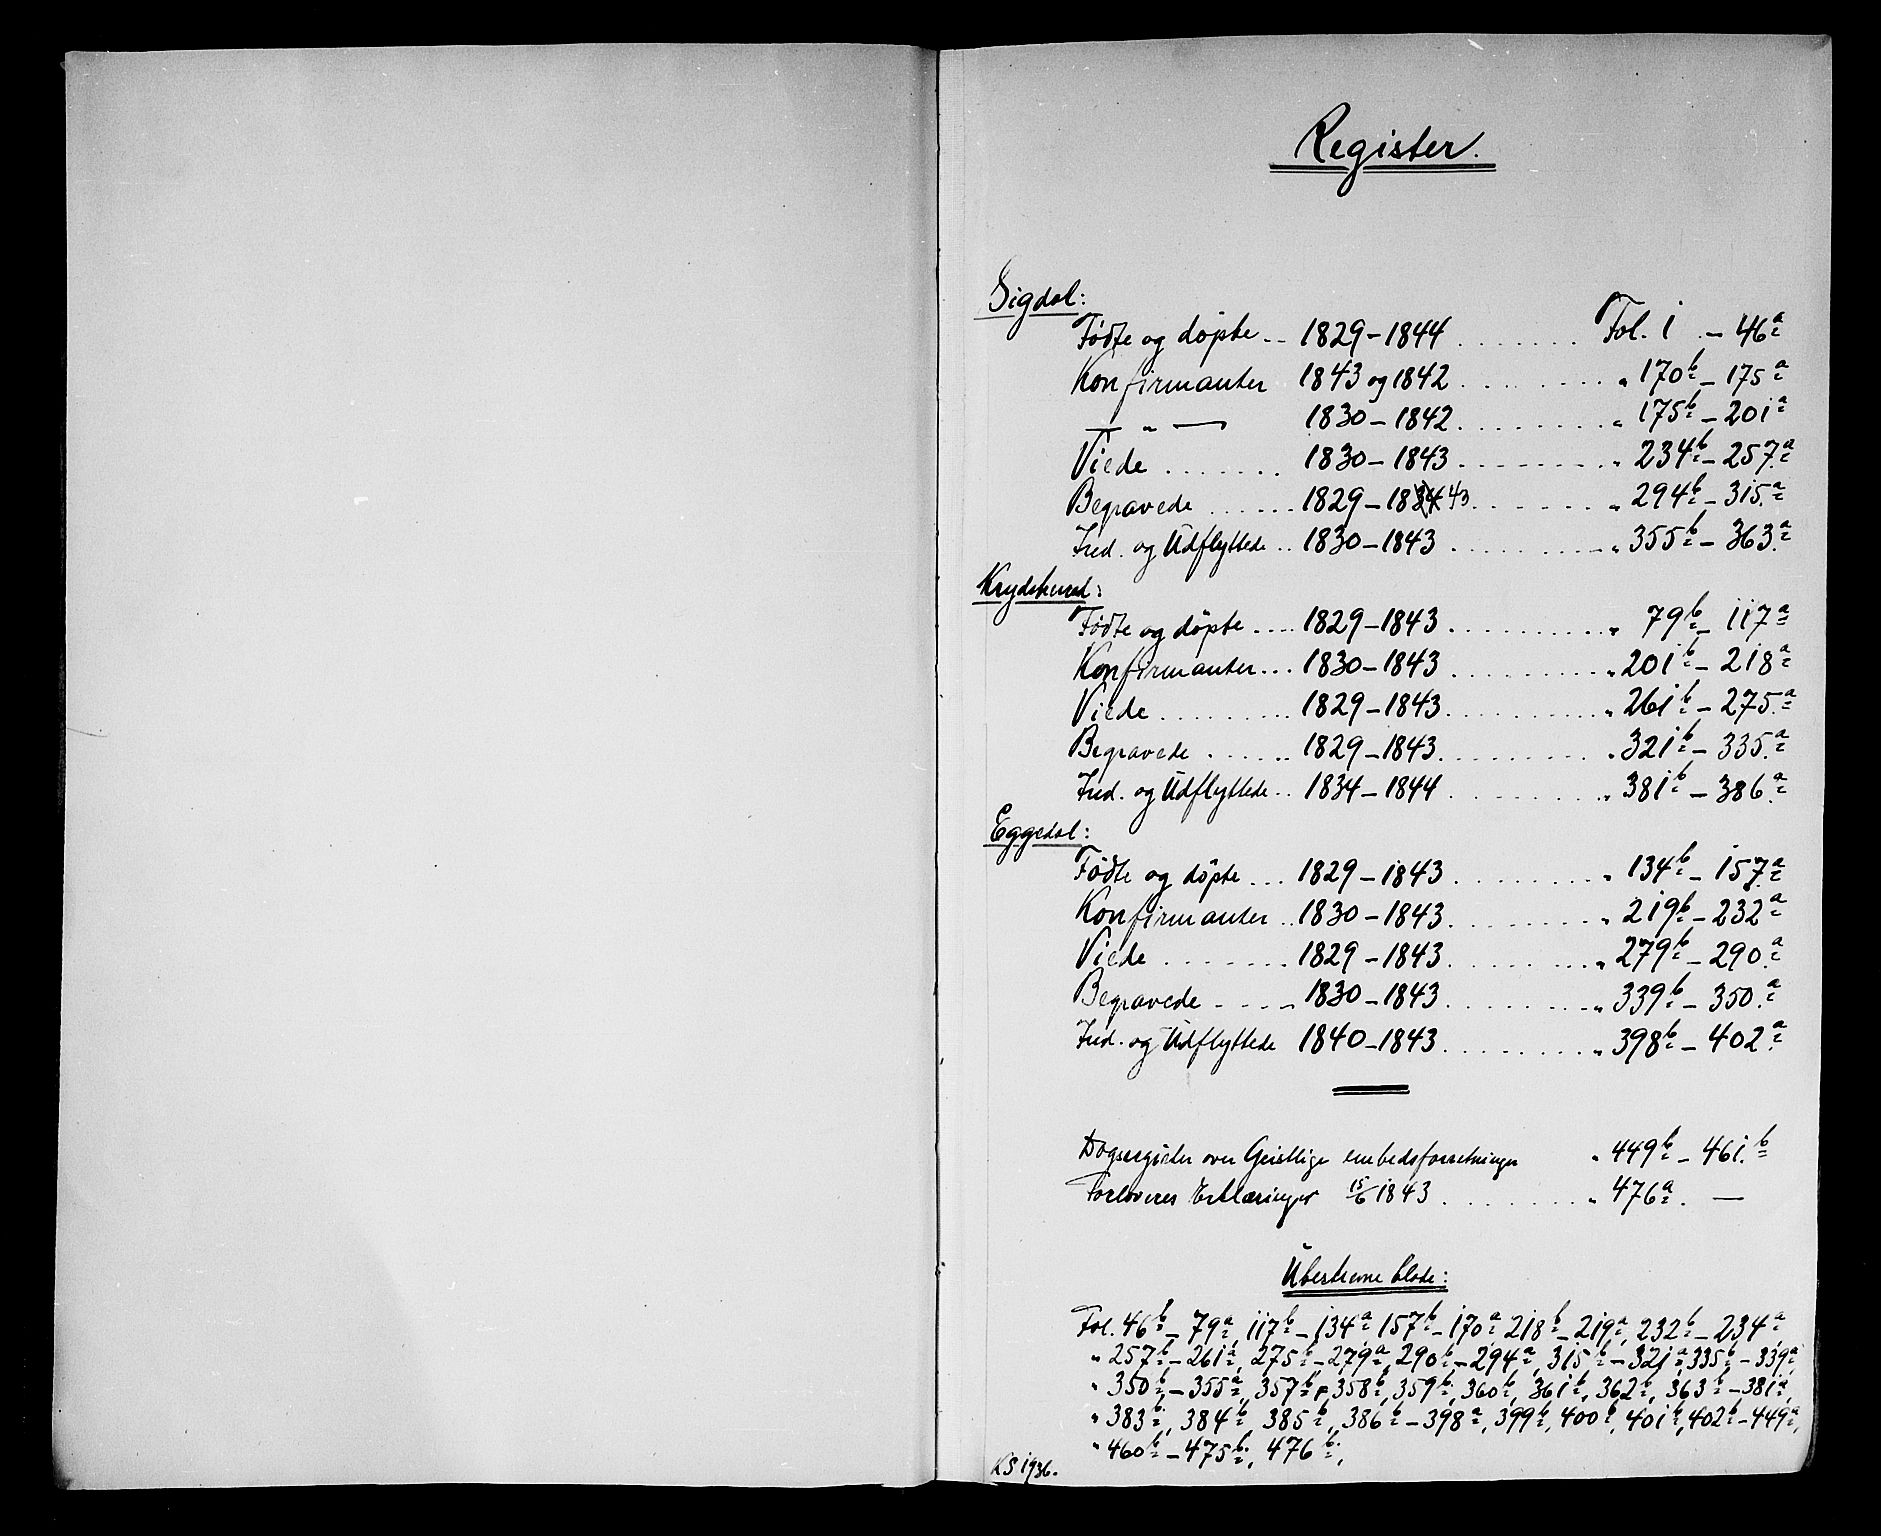 Register.
Sigdal:
Fødte og døpte .. 1829 - 1844 ....... Fol. 1 - 46a
Konfirmanter 1843 og 1842 ....... " 170b - 175a
— " — 1830 - 1842 ....... " 175b - 201a
Viede ....... 1830 - 1843 ....... " 234b - 257a
Begravede ...... 1829 - 1834 43 ....... " 294b - 315a
Ind. og Udflyttede .. 1830 - 1843 ....... " 355b - 363a
Krydsherred:
Fødte og døpte .... 1829 - 1843 ....... " 79b - 117a
Konfirmanter ... 1830 - 1843 ....... " 201b - 218a
Viede ......... 1829 - 1843 ....... " 261b - 275a
Begravede ...... 1829 - 1843 ....... " 321b - 335a
Ind. og Udflyttede .. 1834 - 1844 ....... " 381b - 386a
Eggedal:
Fødte og døpte ... 1829 - 1843 ....... " 134b - 157a
Konfirmanter .. 1830 - 1843 ....... " 219b - 232a
Viede ....... 1829 - 1843 ....... " 279b - 290a
Begravede .... 1830 - 1843 ....... " 339b - 350a
Ind. og Udflyttede 1840 - 1843 ....... " 398b - 402a
Dagsregister over Geistlige embedsforretninger " 449b - 461b
Forloveres Erklæringer 15/6 1843 ....... " 476a. —
Ubeskrevne blade:
Fol. 46b - 79a, 117b - 134a, 157b - 170a, 218b - 219a, 232b - 234a,
" 257b - 261a, 275b - 279a, 290b - 294a, 315b - 321a, 335b - 339a,
" 350b - 355a, 357b, 358b, 359b, 360b, 361b, 362b, 363b - 381a,
" 383b, 384b, 385b, 386b - 398a, 399b, 400b, 401b, 402b - 449a,
" 460b - 475b, 476b,
KS 1936.